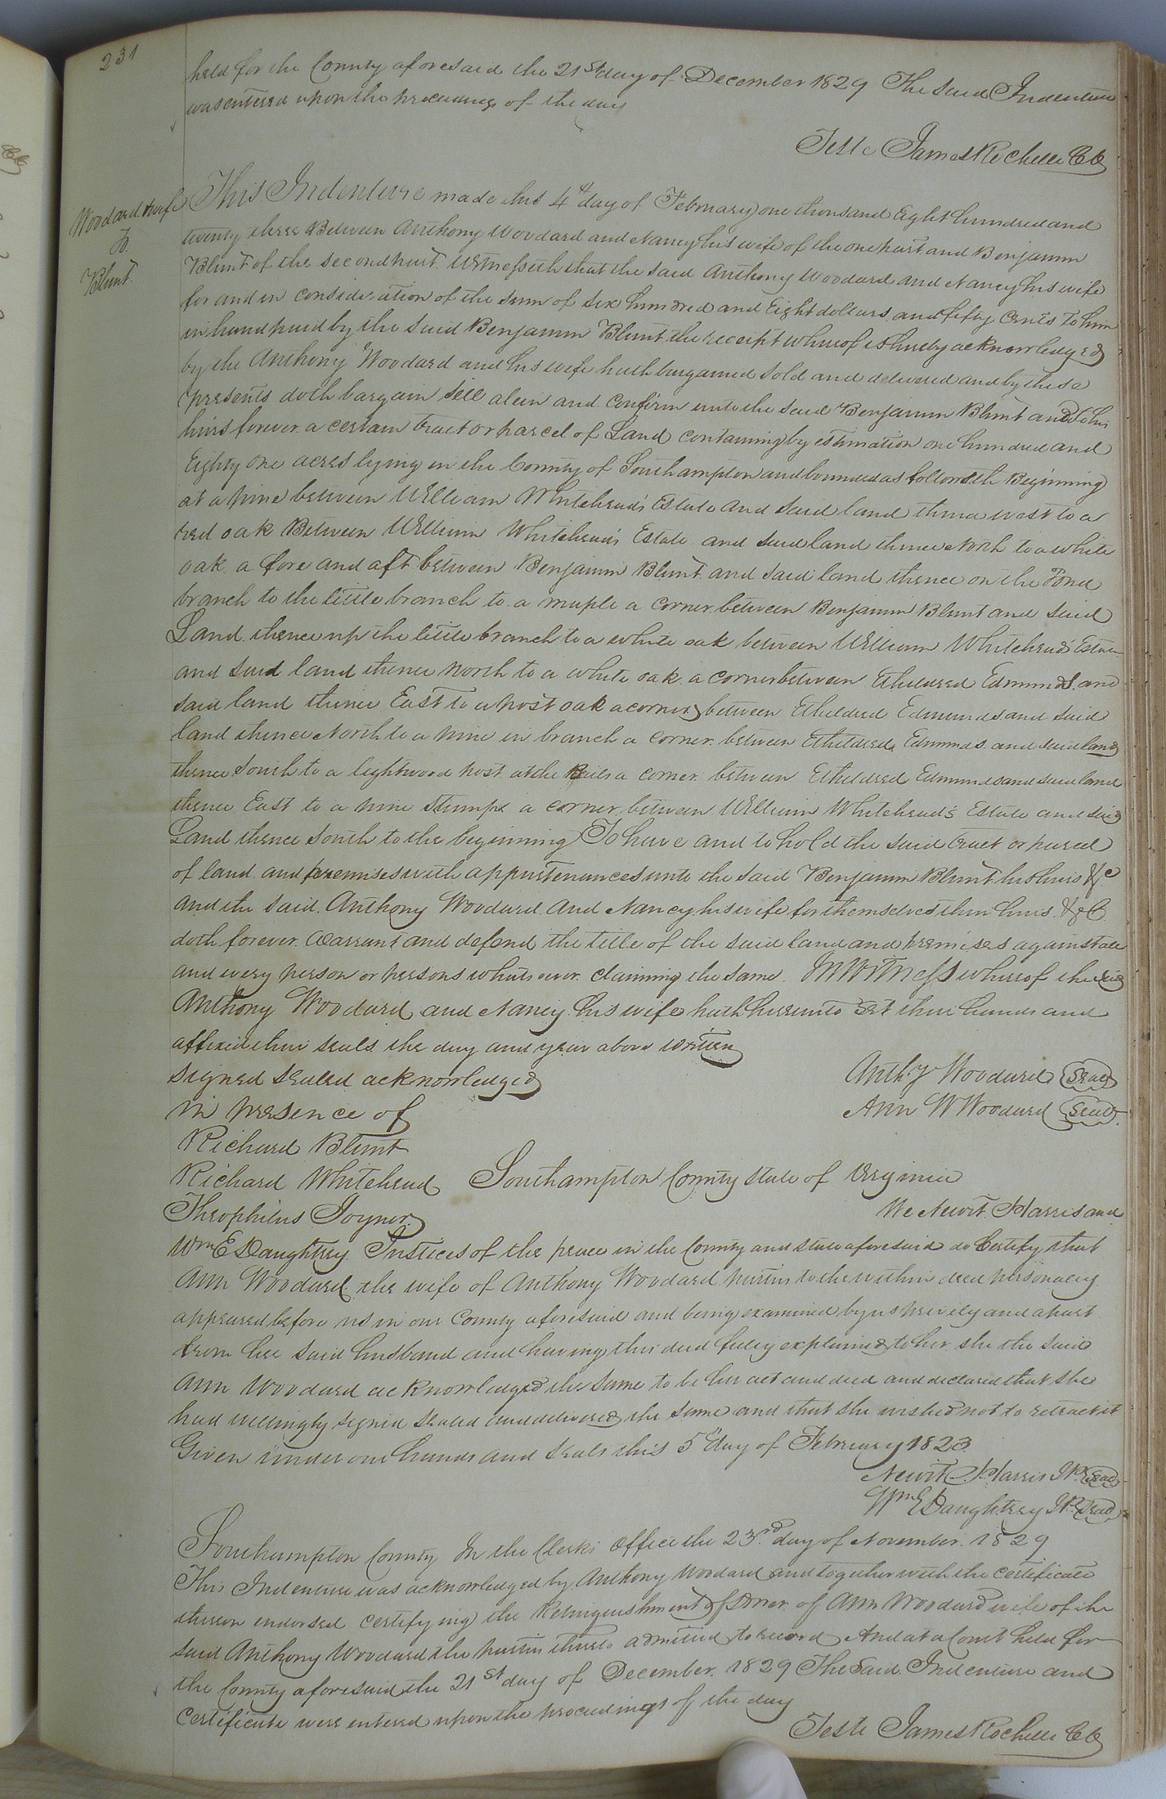 231
held for the County aforesaid the 21st day of December 1829 The said Indenture
was entered upon the proceedings of the day
Teste James Rochelle CC
Woodard & wife
To
Blunt
This Indenture made this 4th day of February one thousand Eight hundred and
twenty three Between Anthony Woodard and Nancy his wife of the one part and Benjamin
Blunt of the second part Witnesseth that the said Anthony Woodard and Nancy his wife
for and in consideration of the sum of six hundred and Eight dollars and fifty Cents to him
in hand paid by the said Benjamin Blunt the receipt whereof is hereby acknowledged
by the Anthony Woodard and his wife hath bargained sold and delivered and by these
presents doth bargain sell alien and confirm unto the said Benjamin Blunt and to his
heirs forever a certain tract or parcel of Land containing by estimation one hundred and
Eighty one acres lying in the County of Southampton and bounded as followeth Beginning
at a pine between William Whitehead's Estate and said land thence west to a
red oak Between William Whitehead's Estate and said land thence North to a white
oak a fore and aft between Benjamin Blunt and said land thence on the Pond
branch to the little branch to a maple a corner between Benjamin Blunt and said
Land thence up the little branch to a white oak between William Whitehead's Estate
and said land thence north to a white oak a corner between Etheldred Edmunds and
said land thence East to a post oak a corner between Etheldred Edmunds and said
land thence North to a pine in branch a corner between Etheldred Edmunds and said land
thence South to a lightwood post at the Rails a corner between Etheldred Edmunds and said land
thence East to a pine Stump a corner between William Whitehead's Estate and said
Land thence South to the beginning To have and to hold the said tract or parcel
of land and premises with appurtenances unto the said Benjamin Blunt his heirs &c
and the said Anthony Woodard and Nancy his wife for themselves their heirs &c
doth forever warrant and defend the title of the said land and premises against all
and every person or persons whatsoever claiming the same. In Witness whereof the said
Anthony Woodard and Nancy his wife hath hereunto set their hands and
affixed their seals the day and year above written
Signed Sealed acknowledged
in presence of
Anthy Woodard Seal
Ann W Woodard Seal
Richard Blunt
Richard Whitehead
Theophilus Joyner
Southampton County State of Virginia
We Newit Harris and
Wm E Daughtrey Justices of the peace in the County and state aforesaid do Certify that
Ann Woodard the wife of Anthony Woodard parties to the within deed personally
appeared before us in our County aforesaid and being examined by us privily and apart
from her said husband and having this deed fully explained to her she the said
Ann Woodard acknowledged the same to be her act and deed and declared that she
had willingly signed sealed and delivered the same and that she wished not to retract it
Given under our hands and seals this 5th day of February 1823
Newit Harris JP Seal
Wm E Daughtrey JP Seal
Southampton County In the Clerks Office the 23rd day of November 1829
This Indenture was acknowledged by Anthony Woodard and together with the certificate
thereon endorsed certifying the Relinquishment of Dower of Ann Woodard wife of the
said Anthony Woodard the parties thereto admitted to record And at a Court held for
the County aforesaid the 21st day of December 1829 The said Indenture and
Certificate were entered upon the proceedings of the day
Teste James Rochelle CC